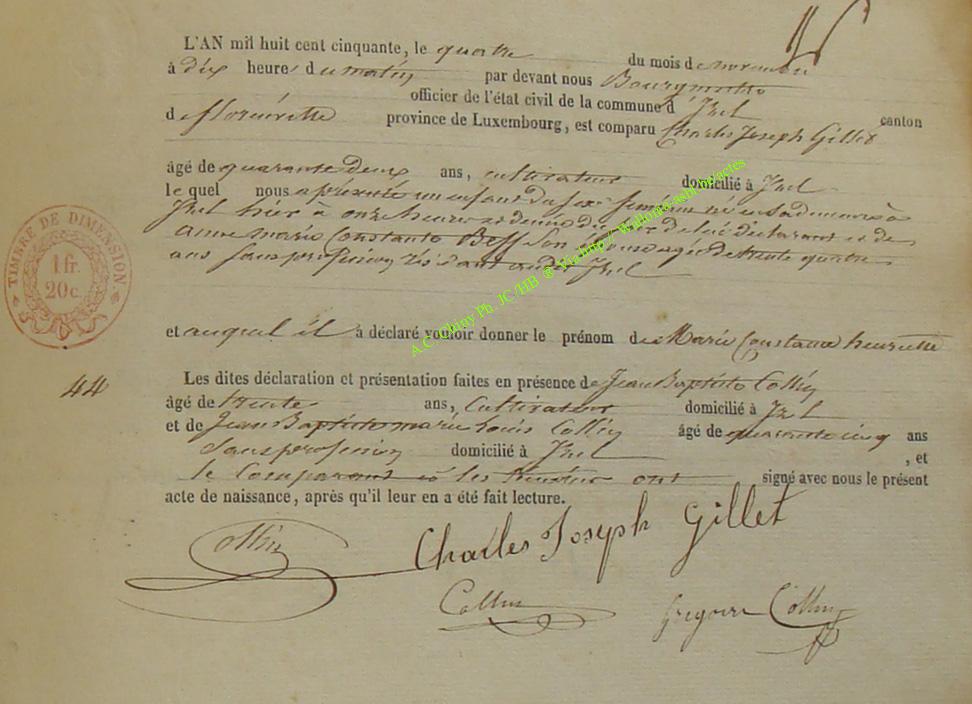 L'AN mil huit cent cinquante, le quatre du mois de novembre
à dix heures du matin par devant nous Bourgmestre
officier de l'état civil de la commune d'Izel canton
de florenville province de Luxembourg, est comparu Charles Joseph Gillet
âgé de quarante deux ans, cultivateur domicilié à Izel
le quel nous a présenté un enfant du sexe féminin né en sa demeure à
Izel hier à onze heures et demie du de lui déclarant et de
anne marie Constante son épouse agée de trente quatre
ans sans profession résidant audit Izel
et auquel il a déclaré vouloir donner le prénom des Marie Constance henriette
44
Les dites déclaration et présentation faites en présence de Jean Baptiste Collin
âgé de trente ans, Cultivateur domicilié à Izel
et de Jean Baptiste marie Louis Collin âgé de quarante cinq ans
Sans profession domicilié à Izel , et
le Comparant et les témoins ont signé avec nous le présent
acte de naissance, après qu'il leur en a été fait lecture.
Collin
Charles Joseph Gillet
Collin
Gregoire Collin
TIMBRE DE DIMENSION
1 fr.
20c.
A.C. Chiny Ph. JC/HB ®